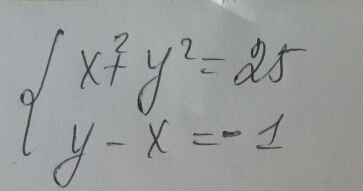 x² + y² = 25
y - x = -1